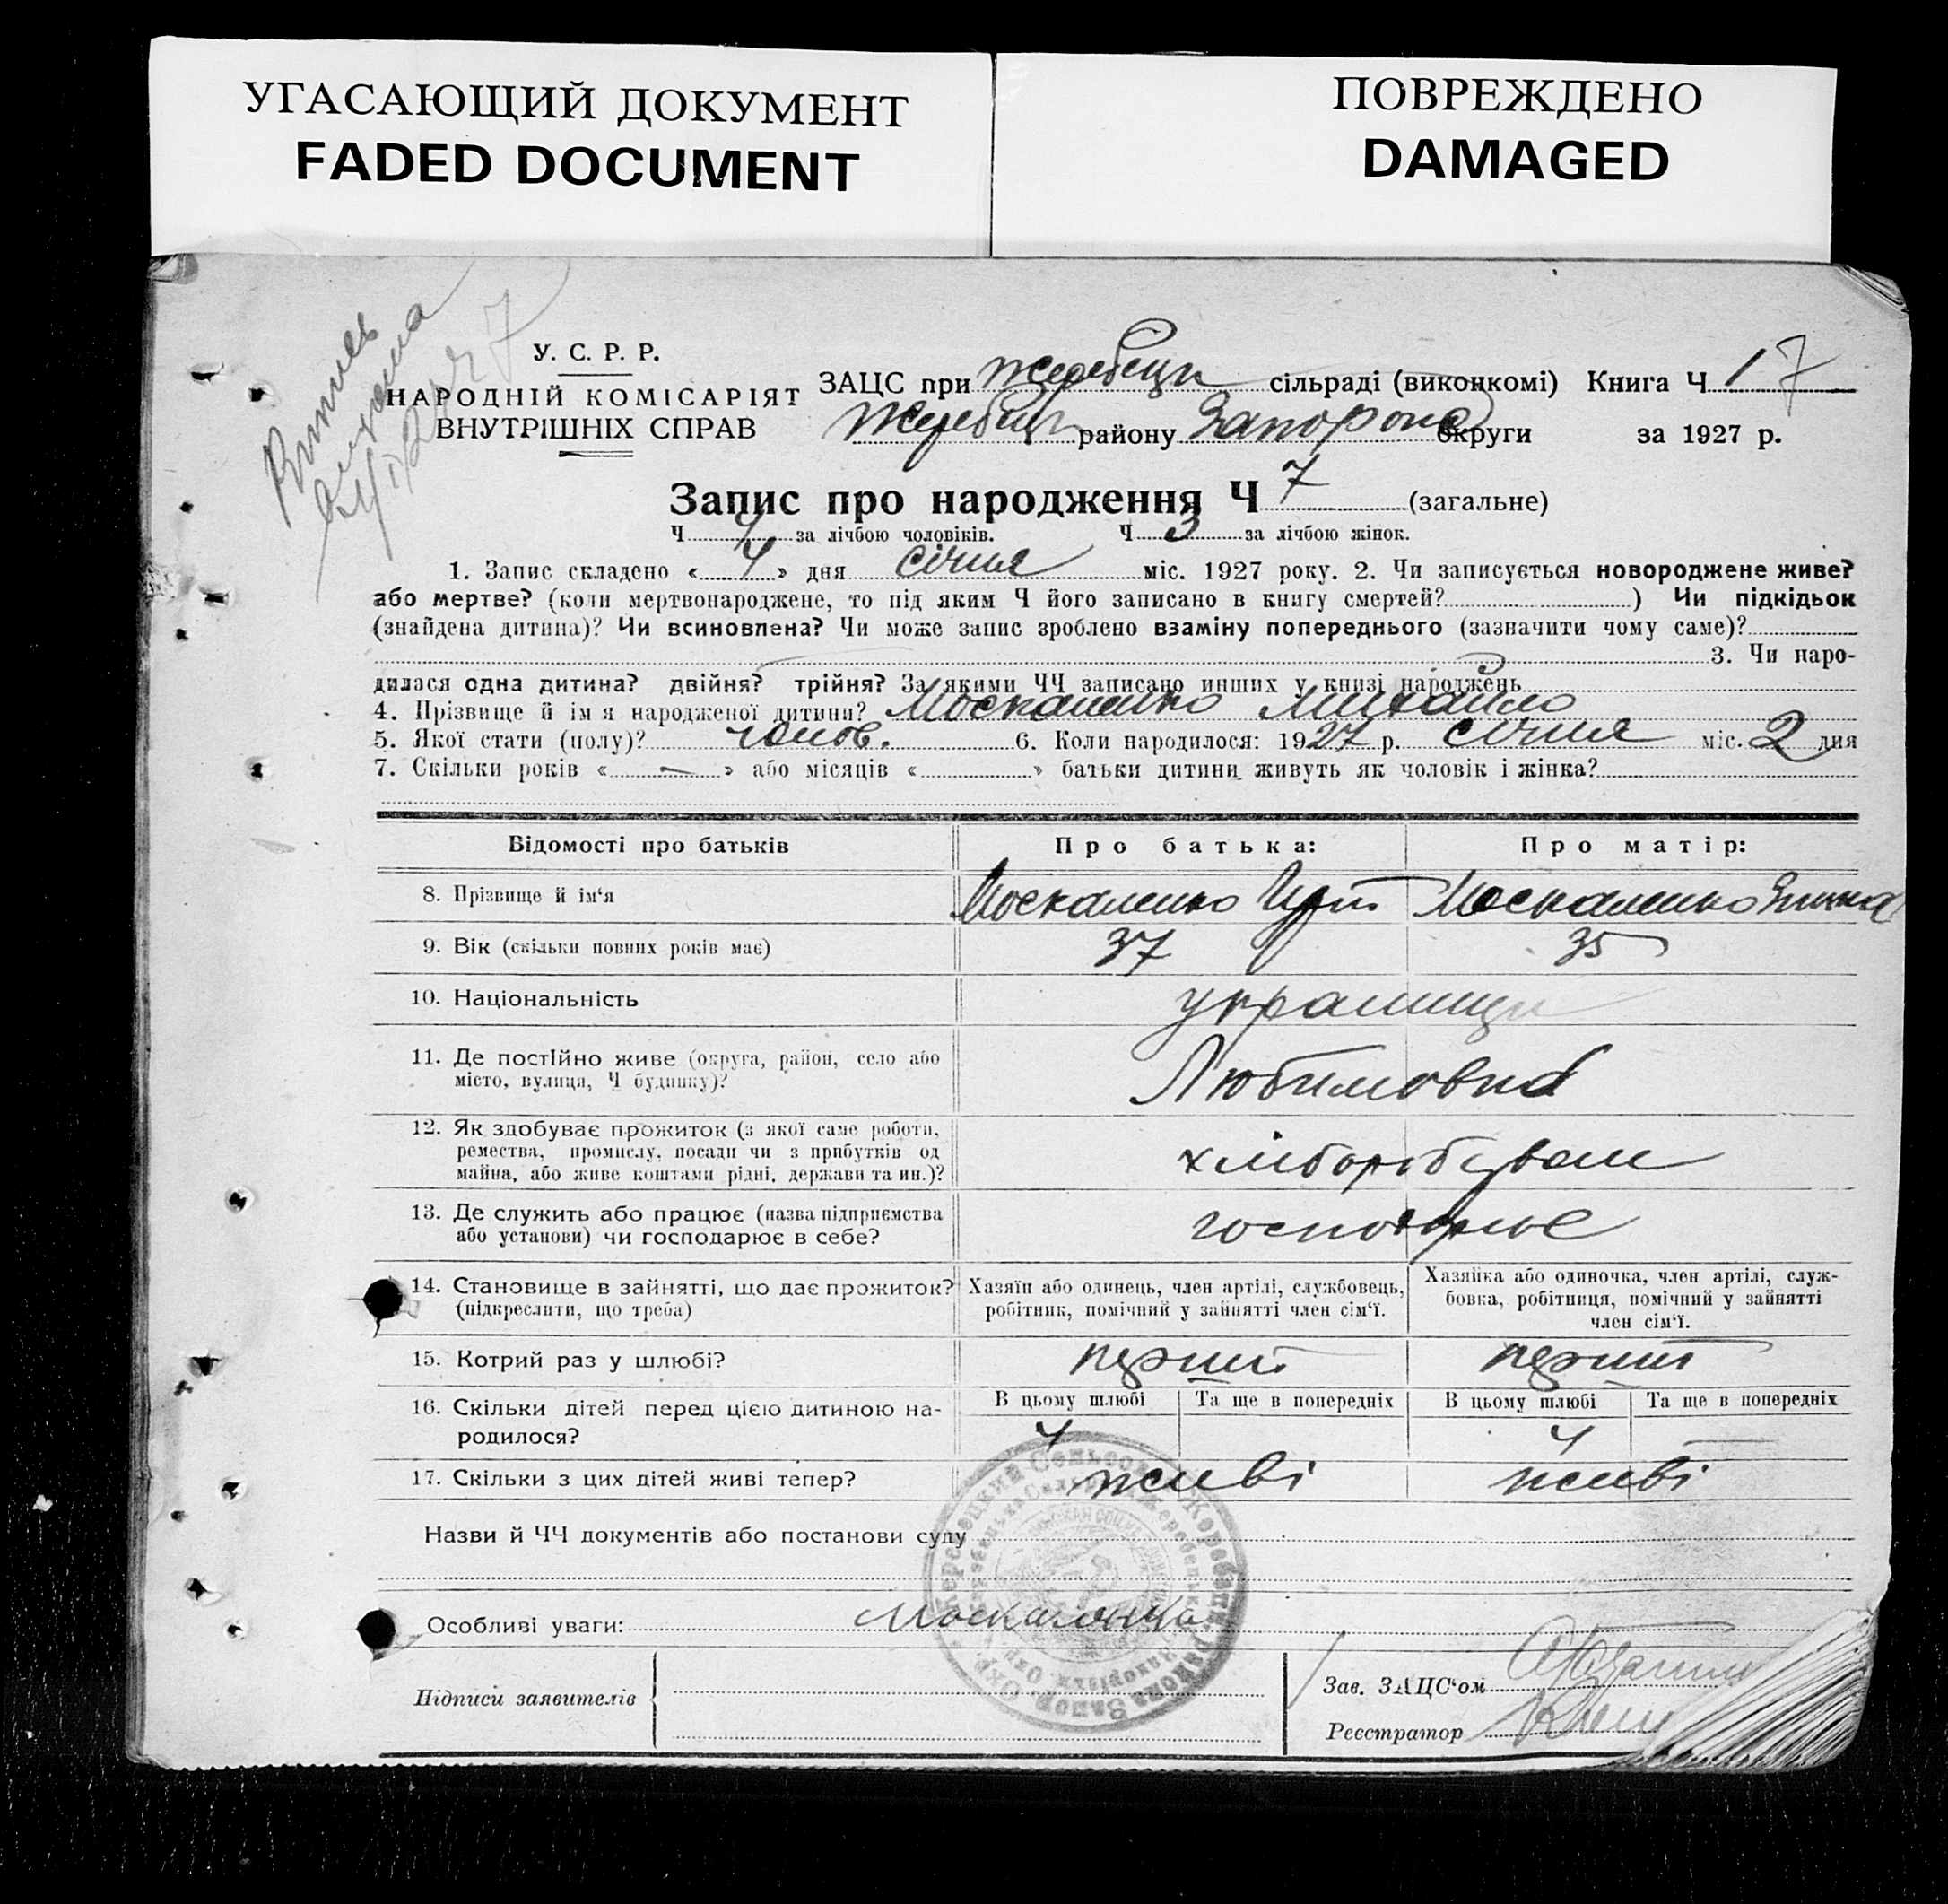 УГАСАЮЩИЙ ДОКУМЕНТ
FADED DOCUMENT
ПОВРЕЖДЕНО
DAMAGED
У. С. Р. Р.
НАРОДНІЙ КОМІСАРІЯТ
ВНУТРІШНІХ СПРАВ
ЗАЦС при Жеребецк сільраді (виконкомі) Книга Ч 1 7
Жеребецк району Запорож округи за 1927 р.
Запис про народження Ч 7 (загальне)
Ч 4 за лічбою чоловіків. Ч 3 за лічбою жінок.
1. Запис складено « 4 » дня січня міс. 1927 року. 2. Чи записується новороджене живе?
або мертве? (коли мертвонароджене, то під яким Ч його записано в книгу смертей? ) Чи підкідьок
(знайдена дитина)? Чи всиновлена? Чи може запис зроблено взаміну попереднього (зазначити чому саме)?
3. Чи наро-
дилася одна дитина? двійня? трійня? За якими ЧЧ записано инших у книзі народжень
4. Прізвище й імя народженої дитини? Москаленко Михайло
5. Якої стати (полу)? чолов. 6. Коли народилося: 1927 р. січня міс. 2 дня
7. Скільки років « — » або місяців « » батьки дитини живуть як чоловік і жінка?
Відомості про батьків Про батька: Про матір:
8. Прізвище й ім‘я Москаленко Москаленко
9. Вік (скільки повних років має) 37 35
10. Національність українци
11. Де постійно живе (округа, район, село або
місто, вулиця, Ч будинку)? Любимовка
12. Як здобуває прожиток (з якої саме роботи,
ремества, промислу, посади чи з прибутків од
майна, або живе коштами рідні, держави та ин.)?
13. Де служить або працює (назва підприємства
або установи) чи господарює в себе? господарює
14. Становище в зайнятті, що дає прожиток?
(підкреслити, що треба)
Хазяїн або одинець, член артілі, службовець,
робітник, помічний у зайнятті член сім‘ї.
Хазяйка або одиночка, член артілі, служ-
бовка, робітниця, помічний у зайнятті
член сім‘ї.
15. Котрий раз у шлюбі? перший перший
16. Скільки дітей перед цією дитиною на-
родилося?
В цьому шлюбі Та ще в попередніх В цьому шлюбі Та ще в попередніх
4 4
17. Скільки з цих дітей живі тепер? живі живі
Назви й ЧЧ документів або постанови суду
Особливі уваги: Москаленко
Підписи заявителів
Зав. ЗАЦС‘ом
Реєстратор